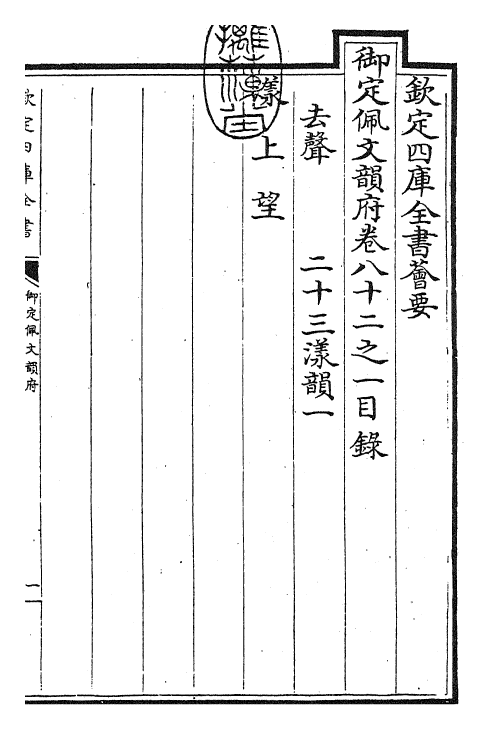 欽定四庫全書薈要
御定佩文韻府卷八十二之一目錄
去聲 二十三漾韻一
漾 上 望
欽定四庫全書
御定佩文韻府
一